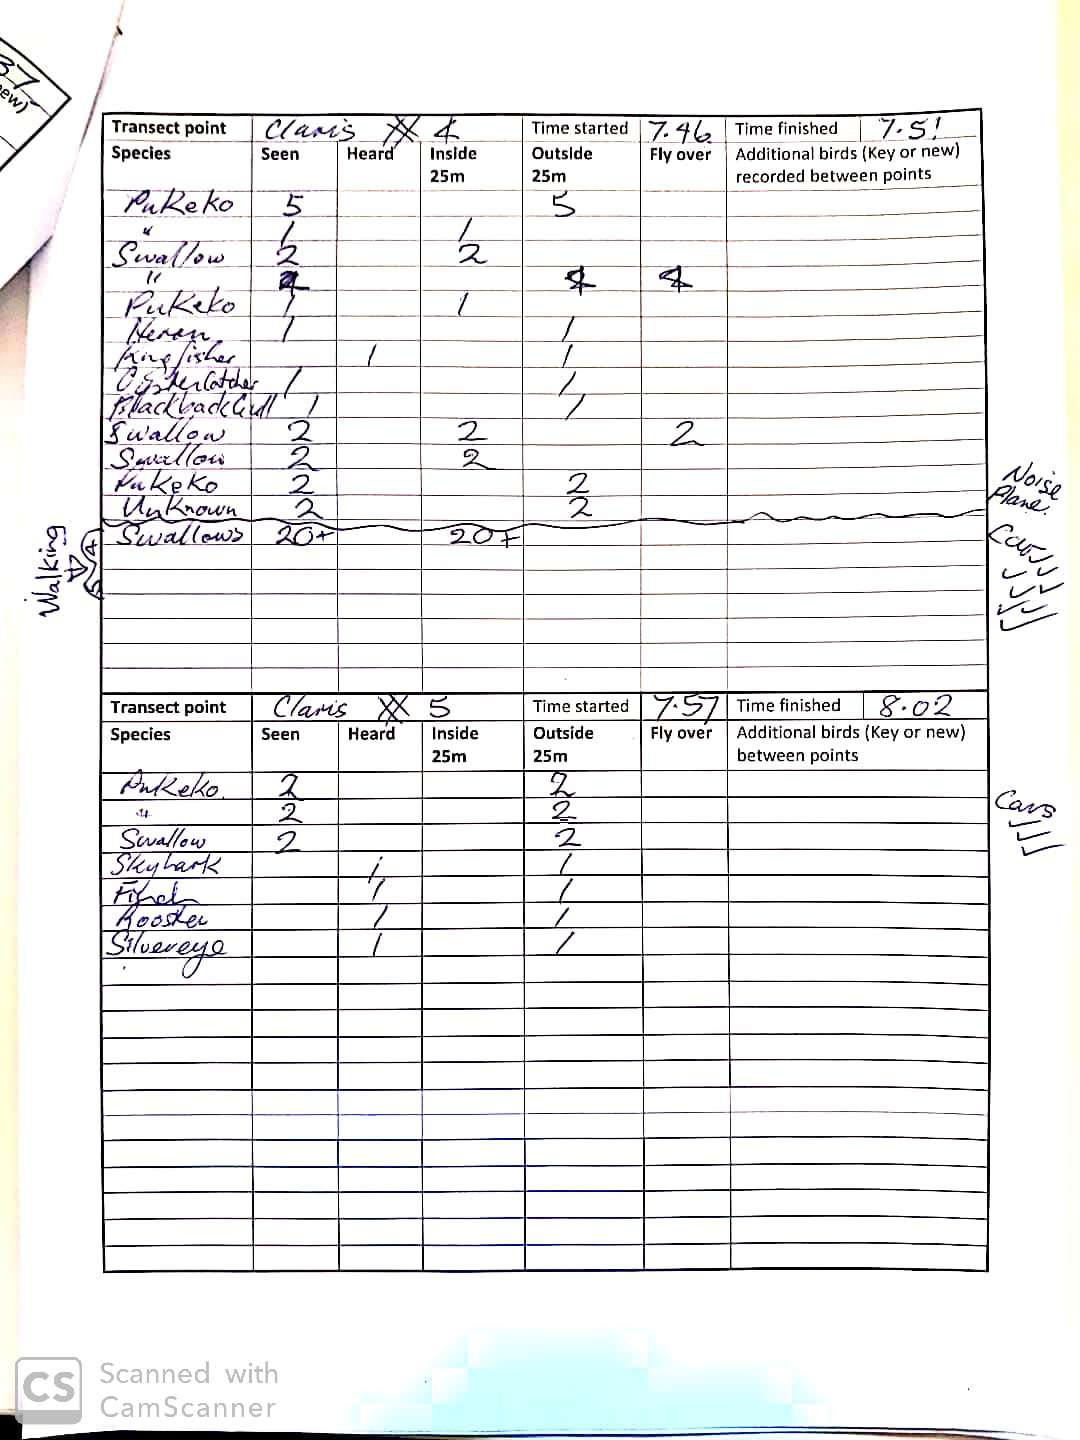 37
ew)
Transect point Claris XX 4 Time started 7.46 Time finished 7.51
Species Seen Heard Inside 25m Outside 25m Fly over Additional birds (Key or new) recorded between points
Pukeko 5 5
" 1 1
Swallow 2 2
" 4 4 4
Pukeko 1 1
Heron 1 1
Kingfisher 1 1
Oystercatcher 1 1
Blackback Gull 1 1
Swallow 2 2 2
Swallow 2 2
Pukeko 2 2
Unknown 2 2
Swallows 20+ 20+
Walking 4 5
Noise
Plane.
Cars ✓✓✓✓✓✓✓✓
Transect point Claris XX 5 Time started 7.57 Time finished 8.02
Species Seen Heard Inside 25m Outside 25m Fly over Additional birds (Key or new) between points
Pukeko 2 2
" 2 2
Swallow 2 2
Skylark 1 1
Finch 1 1
Rooster 1 1
Silvereye 1 1
Cars ✓✓✓
CS Scanned with
CamScanner